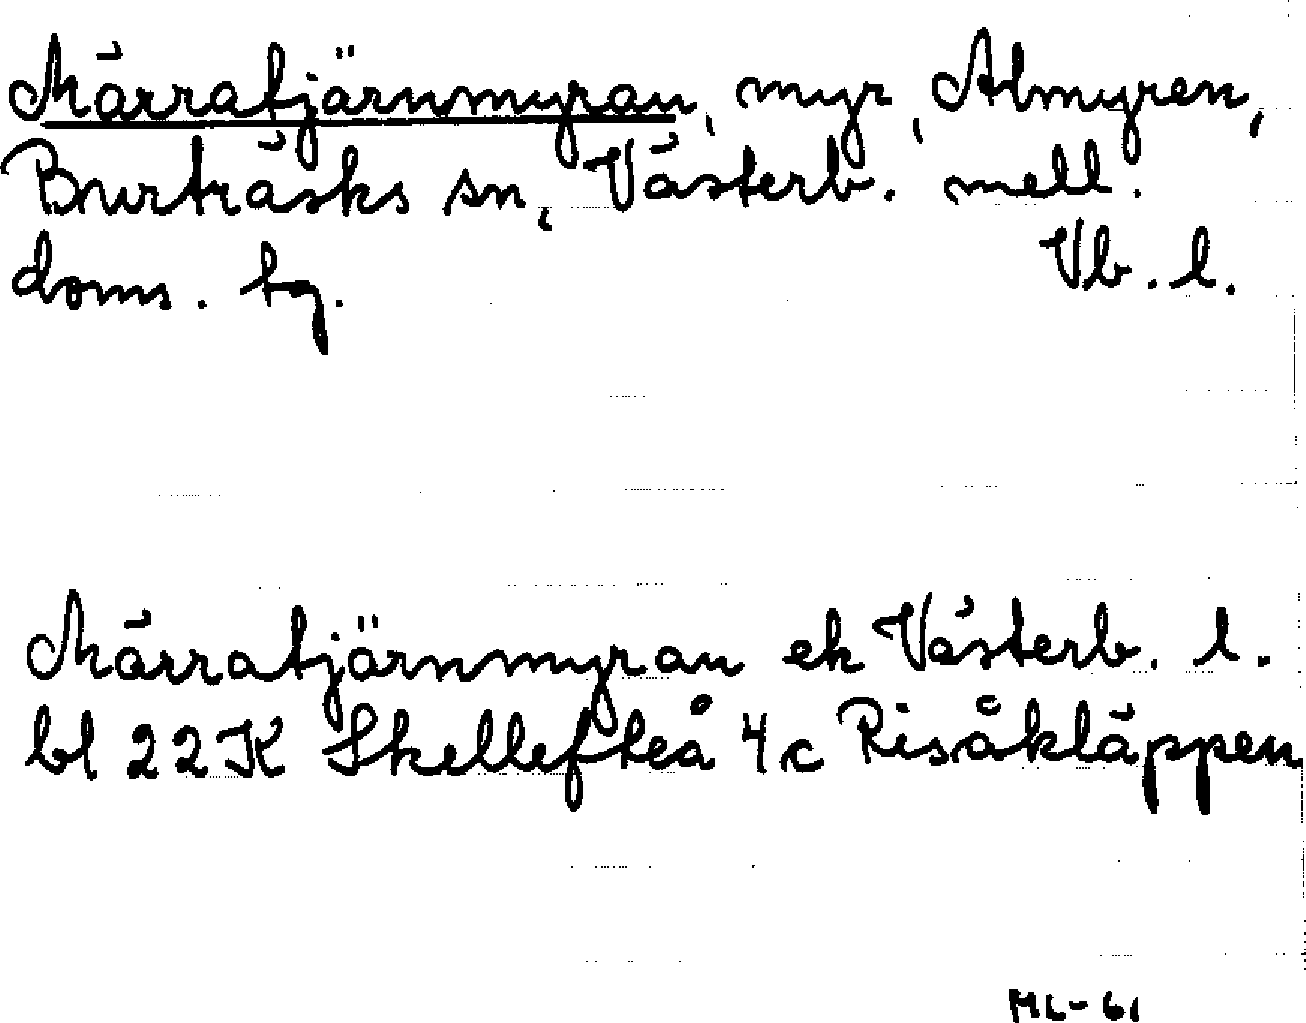 Märratjärnmyran, myr, Almyren,
Burträsks sn, Västerb. mell.
doms. tg. Vb. l.
Märratjärnmyran ek Västerb. l.
bl 22K Skellefteå 4c Risåkläppen
ML-61